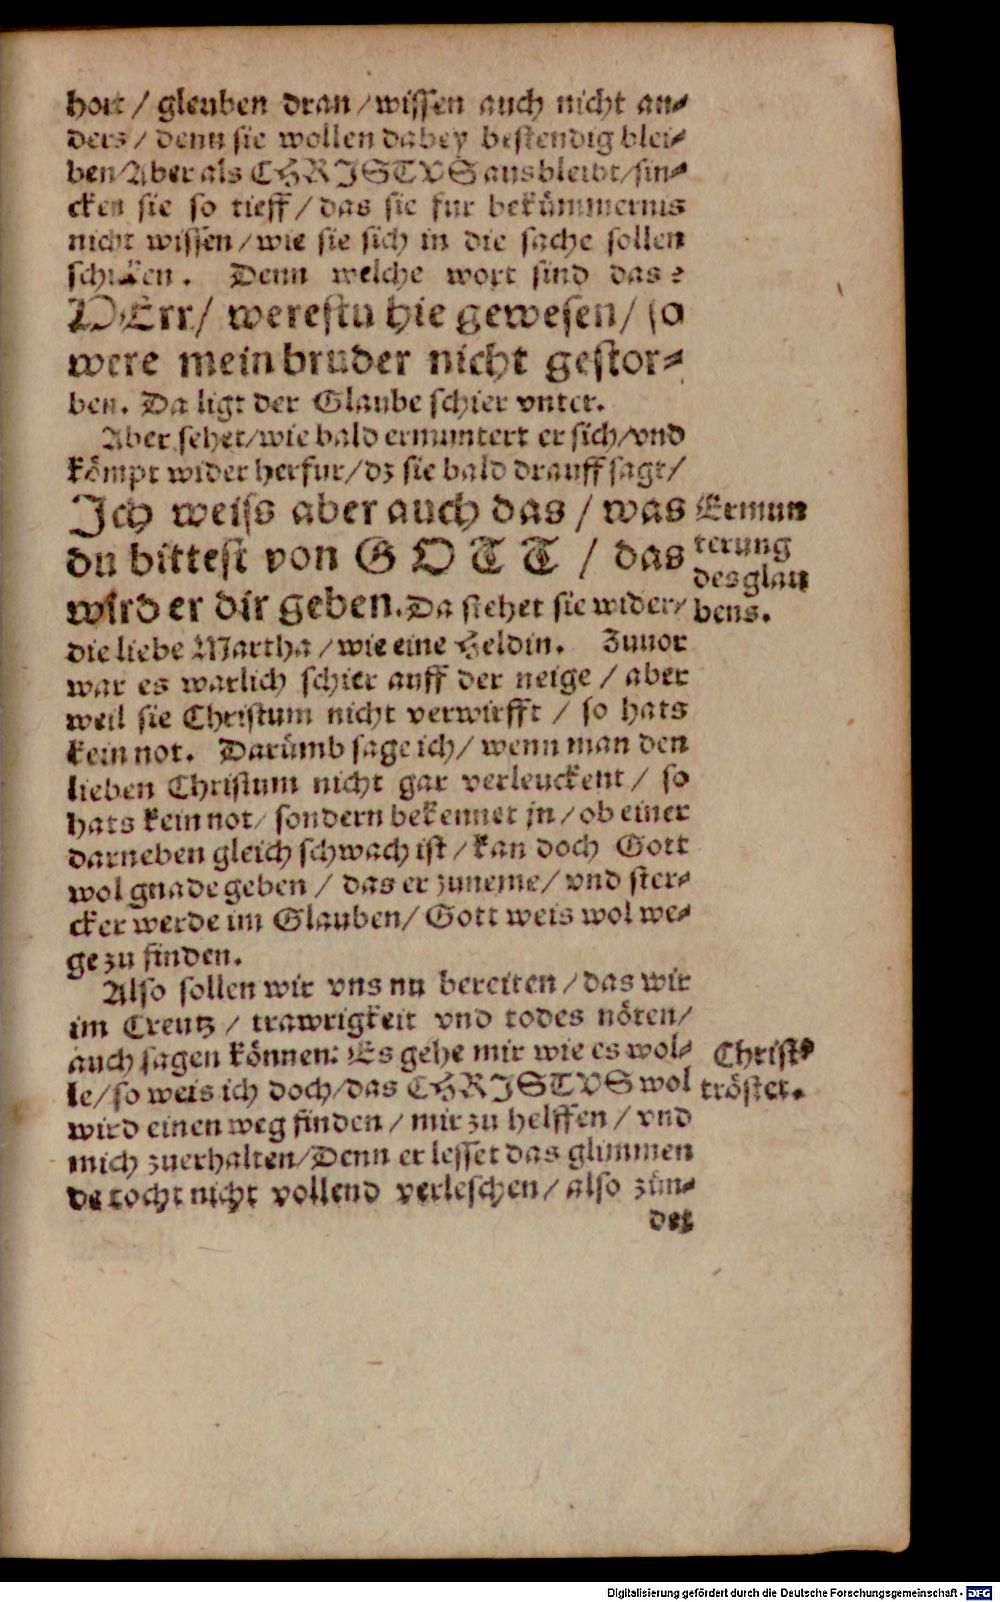 hort / gleuben dran / wissen auch nicht an⸗
ders / denn sie wollen dabey bestendig blei⸗
ben / Aber als CHRISTVS ausbleibt / sin⸗
cken sie so tieff / das sie fur bekümmernis
nicht wissen / wie sie sich in die sache sollen
schicken. Denn welche wort sind das?
HErr / werestu hie gewesen / so
were mein bruder nicht gestor⸗
ben. Da ligt der Glaube schier vnter.
Aber sehet / wie bald ermuntert er sich / vnd
kömpt wider herfur / dz sie bald drauff sagt /
Jch weiss aber auch das / was
du bittest von GOTT / das
wird er dir geben. Da stehet sie wider /
Ermun
terung
des glau
bens.
die liebe Martha / wie eine Heldin. Zuuor
war es warlich schier auff der neige / aber
weil sie Christum nicht verwirfft / so hats
kein not. Darümb sage ich / wenn man den
lieben Christum nicht gar verleuckent / so
hats kein not / sondern bekennet jn / ob einer
darneben gleich schwach ist / kan doch Gott
wol gnade geben / das er zuneme / vnd ster⸗
cker werde im Glauben / Gott weis wol we⸗
ge zu finden.
Also sollen wir vns nu bereiten / das wir
im Creutz / trawrigkeit vnd todes nöten /
auch sagen können: Es gehe mir wie es wol⸗
le / so weis ich doch / das CHRISTVS wol
wird einen weg finden / mir zu helffen / vnd
mich zuerhalten / Denn er lesset das glimmen
de tocht nicht vollend verleschen / also zün⸗
det
Christ⁹
tröstet.
Digitalisierung gefördert durch die Deutsche Forschungsgemeinschaft - DFG